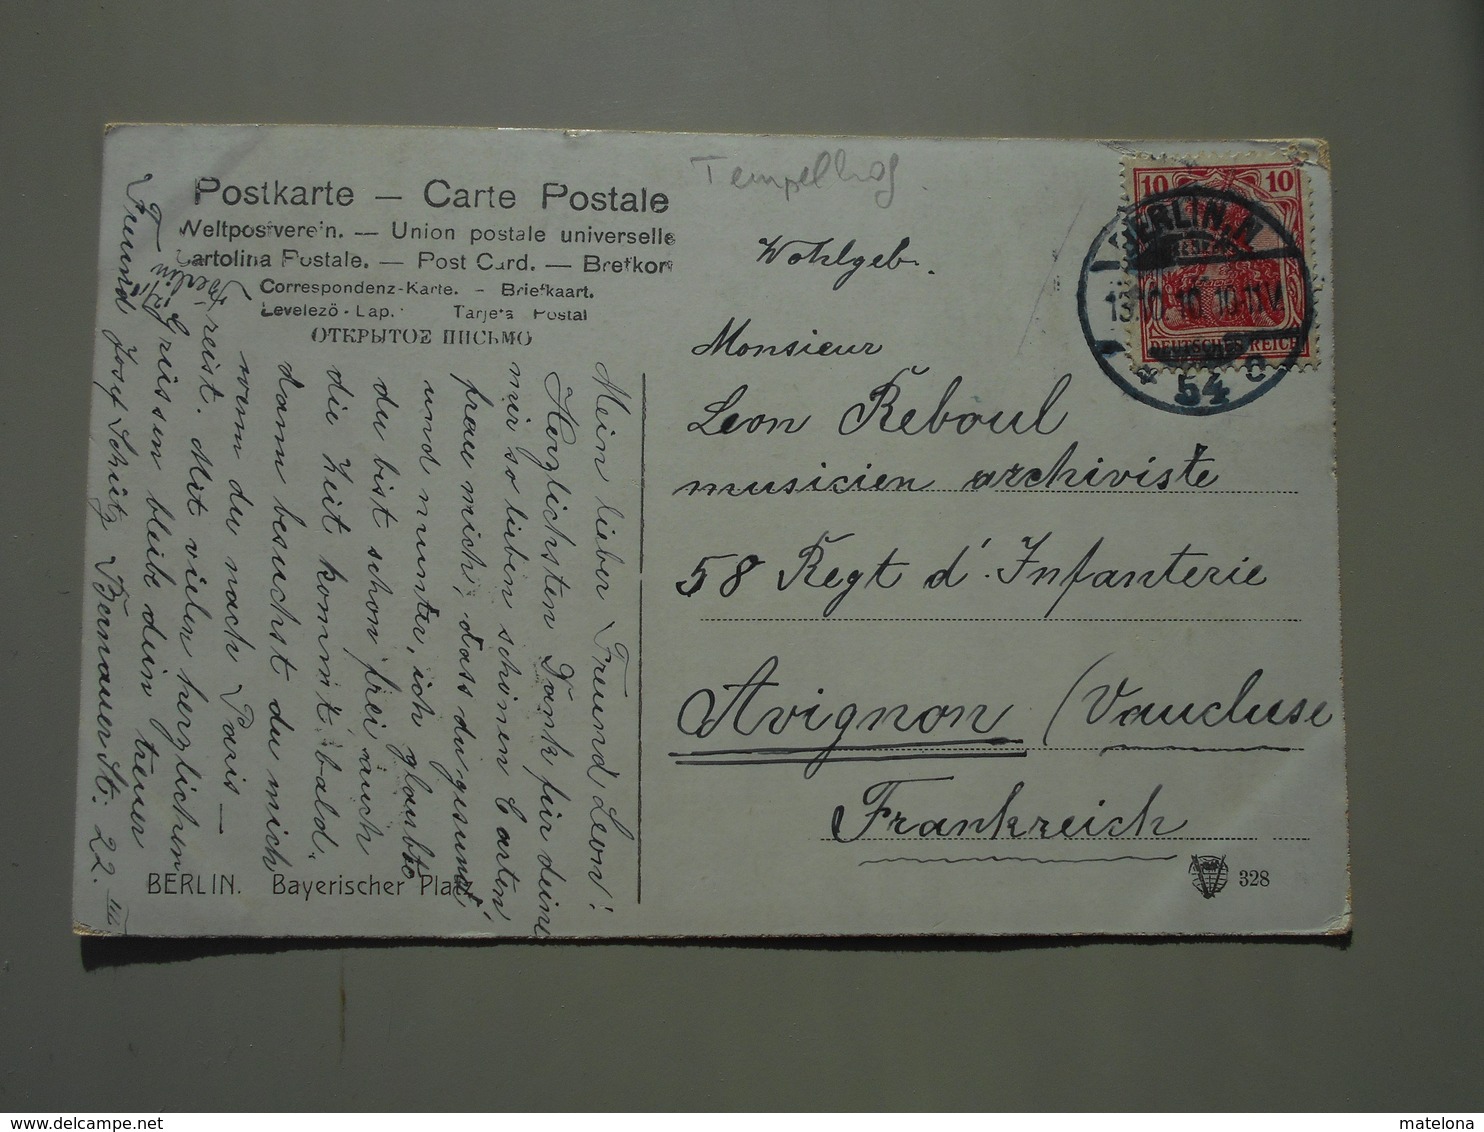 Tempelhof
Postkarte — Carte Postale
Weltpostverein. — Union postale universelle
Cartolina Postale. — Post Card. — Brefkort
Correspondenz-Karte. - Briefkaart.
Levelező-Lap. Tarjeta Postal
ОТКРЫТОЕ ПИСЬМО
10 10
DEUTSCHES REICH
BERLIN, N.
13.10.10.10-11V.
* 54 c
Wohlgeb.
Monsieur
Leon Reboul
musicien archiviste
58 Regt d'Infanterie
Avignon (Vaucluse
Frankreich
328
Mein lieber Freund Leon!
Herzlichsten Dank für deine
mir so lieben schönen Carten
frau mich, dass du gesund
und munter, ich glaubte
du bist schon frei, auch
die Zeit kommt bald.
dann besuchst du mich
wenn du nach Paris —
reist. Mit vielen herzlichen
Grüssen bleibe dein treuer
Freund Josef Schütz Bernauer St. 22.
Berlin
BERLIN. Bayerischer Platz
matelona
delcampe.net